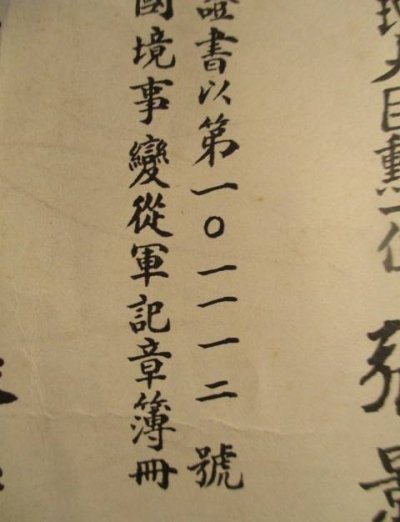 大臣勳一位 張景
證書以第一〇一一一二號
國境事變從軍記章簿冊